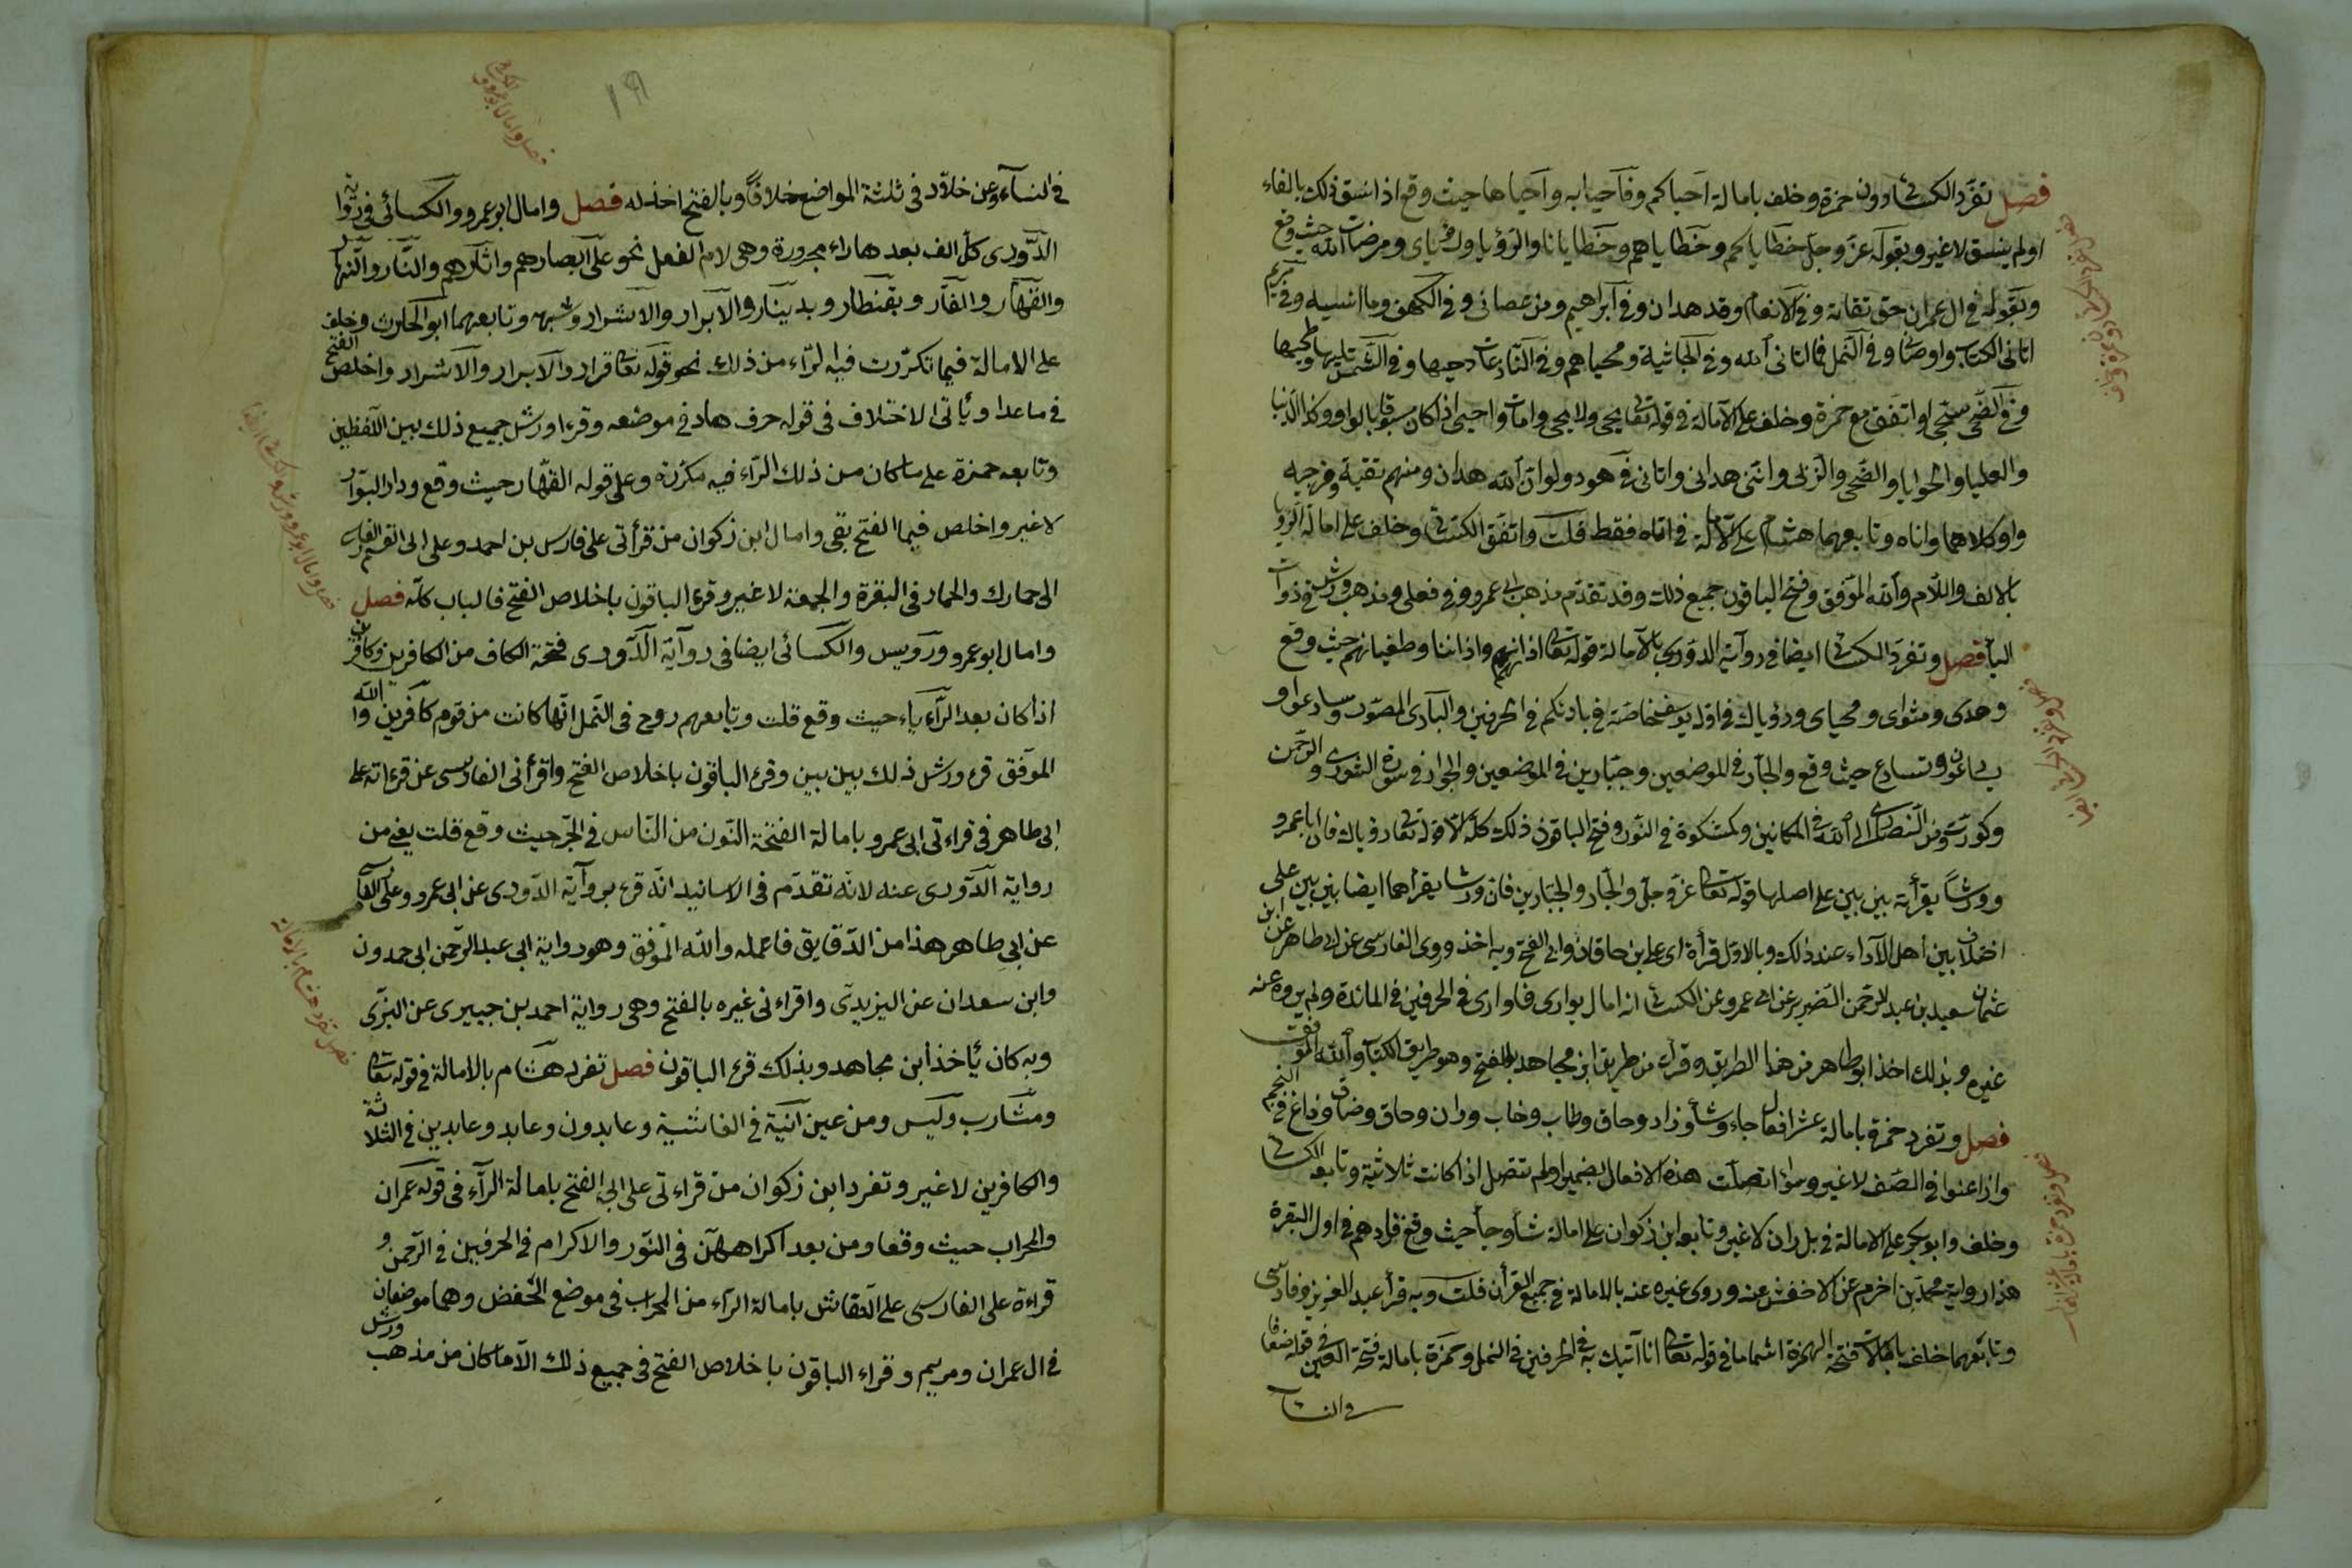 فصل تفرد الكسائى دون حمزة وخلف بامالة احياكم وفاحيا به واحياها حيث وقع اذا نسق ذلك بالفاء
اولم ينسق لاغير وبقوله عز وجل خطاياكم وخطاياهم وخطايانا والرؤيا ورؤياى ومرضات الله حيث وقع
وبقوله فى ال عمران حق تقاته وفى الانعام وقد هدان وفى ابراهيم ومن عصانى وفى الكهف وما انسنيه وفى مريم
اتانى الكتاب واوصانى وفى النمل فما اتانى الله وفى الجاثية ومحياهم وفى النازعات دحيها وفى الشمس تليها وطحيها
وفى الضحى سجى واتفق مع حمزة وخلف على الامالة فى قوله تعالى يحيى ولا يحيى وامات واحيى اذا كان مسبوقا بالواو وكذا الدنيا
والعليا والحوايا والضحى والزنى وانى هدانى واتانى فى هود ولو ان الله هدان ومنهم تقية ومزجية
واو كلاهما واناه وتابعهما هشام على الامالة فى اناه فقط قلت واتفق الكسائى وخلف على امالة الرويا
بالالف واللام والله الموفق وفتح الباقون جميع ذلك وقد تقدم مذهب ابى عمرو فى فعلى ومذهب ورش فى ذوات
اليا فصل وتفرد الكسائى ايضا فى رواية الدورى بالامالة قوله تعالى اذانهم واذاننا وطغيانهم حيث وقع
وهداى ومثواى ومحياى ورؤياك فى اول يوسف خاصة وفى بارئكم فى الحرفين والبارى المصور وسارعوا و
يسارعون ونسارع حيث وقع والجار فى الموضعين وجبارين فى الموضعين والجوار فى سورة الشورى والرحمن
وكورت ومن انصارى الى الله فى المكانين وكمشكوة فى النور وفتح الباقون ذلك كله الا قوله تعالى رؤياك فان ابا عمرو
وورشا يقرأنه بين بين على اصلها وقوله تعالى عز وجل والجار والجبارين فان ورشا يقرأهما ايضا بين بين على
اختلاف بين اهل الاداء عنه فى ذلك وبالاول قرأة اى على ابن خاقان وابى الفتح وبه اخذ وروى الفارسى عن ابى طاهر عن ابن
عثمان سعيد بن عبد الرحمن الضرير عن ابى عمرو عن الكسائى انه امال يوارى فاوارى فى الحرفين فى المائدة ولم يروه عنه
غيره وبذلك اخذ ابو طاهر من هذا الطريق وقرأت من طريق ابن مجاهد بالفتح وهو طريق الكتاب والله الموفق
فصل وتفرد حمزة بامالة عشر افعال جاء وشاء وزاد وحاق وطاب وخاب وران وخاف وضاق وزاغ فى النجم
وازاغوا فى الصف لاغير وسواء اتصلت هذه الافعال بضمير اولم تتصل اذا كانت ثلاثية وتابعه الكسائى
وخلف وابو بكر على الامالة فى بل ران لاغير وتابعه ابن ذكوان على امالة شاء وجاء حيث وقع فزادهم فى اول البقرة
هذا رواية محمد بن اخرم عن الاخفش عنه وروى غيره عنه بالامالة فى جميع القرأن قلت وبه قرأ عبد العزيز وفارسى
وتابعهما خلف بامالة فتحة الهمزة اشماما فى قوله تعالى انا آتيك به فى الحرفين فى النمل وحمزة بامالة فتحة العين فى قوله ضعافا
فى النساء
١٩
فى النساء وعن خلاد فى ثلثة المواضع خلافا وبالفتح اخذ له فصل وامال ابو عمرو والكسائى فى رواية
الدورى كل الف بعدها راء مجرورة وهى لام الفعل نحو على ابصارهم واثارهم والنار والنهار
والقهار والغار وبقنطار وبدينار والابرار والاشرار وشبهه وتابعهما ابو الحارث وخلف
على الامالة فيما تكررت فيه الراء من ذلك نحو قوله تعالى قرار والابرار والاشرار واخلص الفتح
فى ما عدا وياتى الاختلاف فى قوله حرف هار فى موضعه وقرا ورش جميع ذلك بين اللفظين
وتابعه حمزة على ما كان من ذلك الراء فيه مكررة وعلى قوله القهار حيث وقع ودار البوار
لاغير واخلص فيما الفتح بقى وامال ابن ذكوان من قرأتى على فارس بن احمد وعلى ابى القسم الفارسى
الى حمارك والحمار فى البقرة والجمعة لاغير وقرء الباقون باخلاص الفتح فى الباب كله فصل
وامال ابو عمرو ورويس والكسائى ايضا فى رواية الدورى فتحة الكاف من الكافرين وكافرين
اذا كان بعد الراء ياء حيث وقع قلت وتابعهم روح فى النمل انها كانت من قوم كافرين والله
الموفق قرء ورش ذلك بين بين وقرء الباقون باخلاص الفتح واقرأنى الفارسى عن قرءاته على
ابى طاهر فى قراءتى ابى عمرو بامالة الفتحة النون من الناس فى الجر حيث وقع قلت يعنى من
رواية الدورى عنه لانه تقدم فى الاسانيد انه قرء برواية الدورى عن ابى عمرو وعلى الفارسى
عن ابى طاهر هذا من الدقايق فاعمله والله الموفق وهو رواية ابى عبد الرحمن ابى حمدون
وابن سعدان عن اليزيدى واقراءنى غيره بالفتح وهى رواية احمد بن جبيرى عن البزى
وبه كان يأخذ ابن مجاهد وبذلك قرء الباقون فصل تفرد هشام بالامالة فى قوله تعالى
ومشارب وليس ومن عين انية فى الغاشية وعابدون وعابد وعابدين فى الثلاثة
والكافرين لاغير وتفرد ابن ذكوان من قراءتى على ابى الفتح بامالة الراء فى قوله عمران
والمحراب حيث وقعا ومن بعد اكراههن فى النور والاكرام فى الحرفين فى الرحمن و
قراءة على الفارسى على النقاش بامالة الراء من المحراب فى موضع الخفض وهما موضعان
فى ال عمران ومريم وقراء الباقون باخلاص الفتح فى جميع ذلك الا ما كان من مذهب ورش
فصل تفرد هشام بالامالة